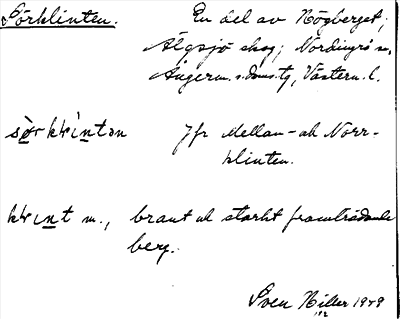 Sörklinten. En del av Högberget;
Älgsjö skog; Nordingrå sn.
Ångerm. s. doms. tg, Västern. l.
Jfr Mellan- och Norr-
klinten.
m., brant och starkt framträdande
berg.
Sven Hiller 1949